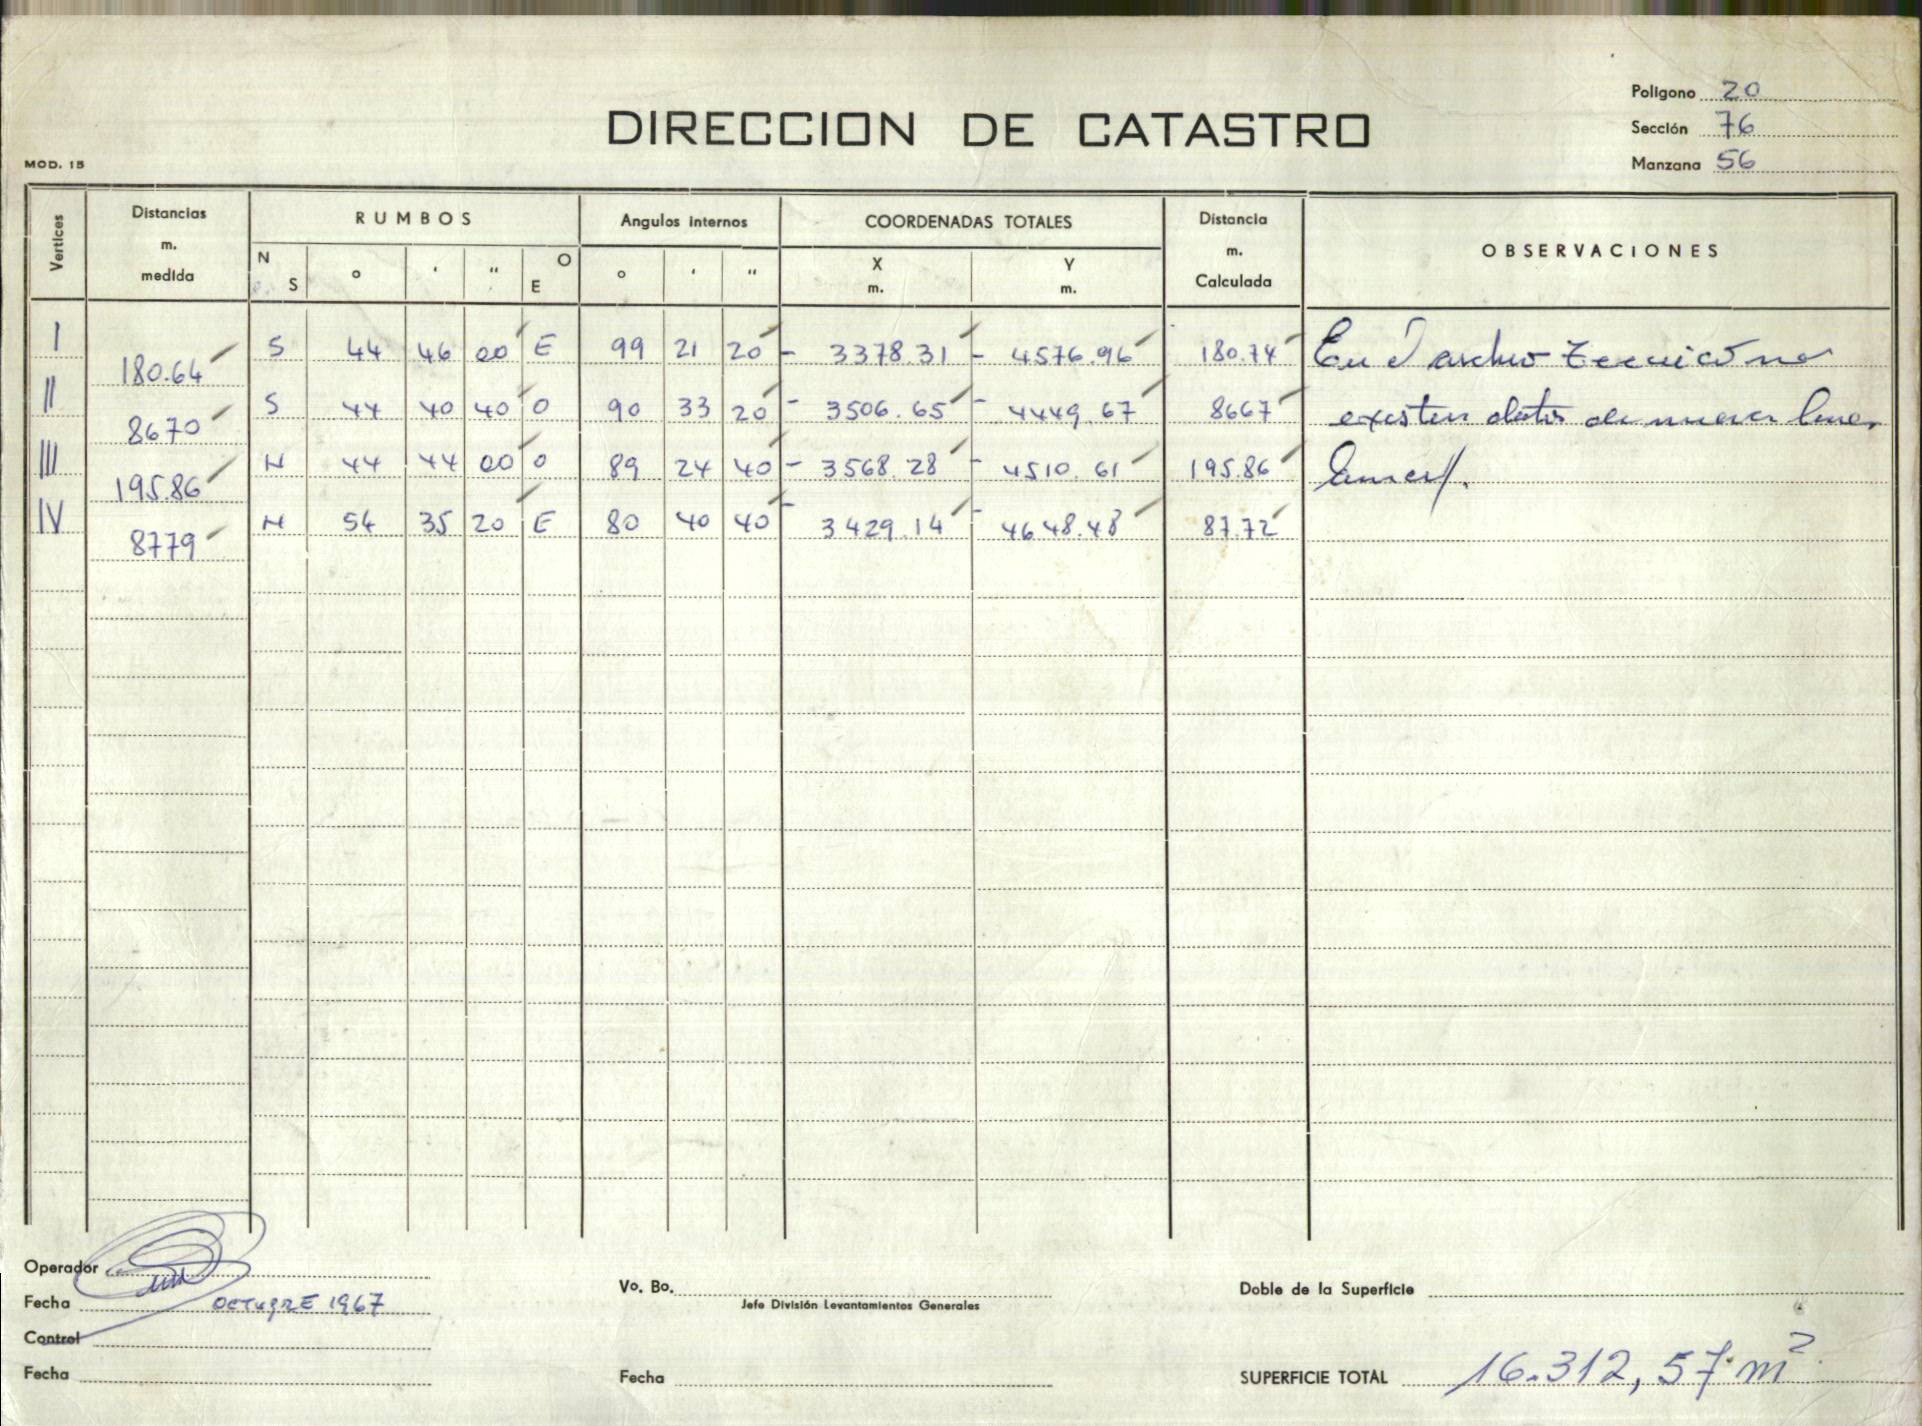 Poligono 20
DIRECCION DE CATASTRO
Sección 76
MOD. 15
Manzana 56
Vertices
Distancias m. medida
RUMBOS
Angulos internos
COORDENADAS TOTALES
Distancia m. Calculada
OBSERVACIONES
N S ° ' " O E
° ' "
X m.
Y m.
I 180.64 S 44 46 00 E 99 21 20 - 3378.31 - 4576.96 180.74 En el archivo tecnico no
II 8670 S 44 40 40 O 90 33 20 - 3506.65 - 4449.67 8667 existen datos de nueva
III 195.86 N 44 44 00 O 89 24 40 - 3568.28 - 4510.61 195.86
IV 8779 N 54 35 20 E 80 40 40 - 3429.14 - 4648.48 87.72
Operador
Fecha OCTUBRE 1967
Control
Fecha
Vo. Bo.
Jefe División Levantamientos Generales
Fecha
Doble de la Superficie
SUPERFICIE TOTAL 16.312,57 m²